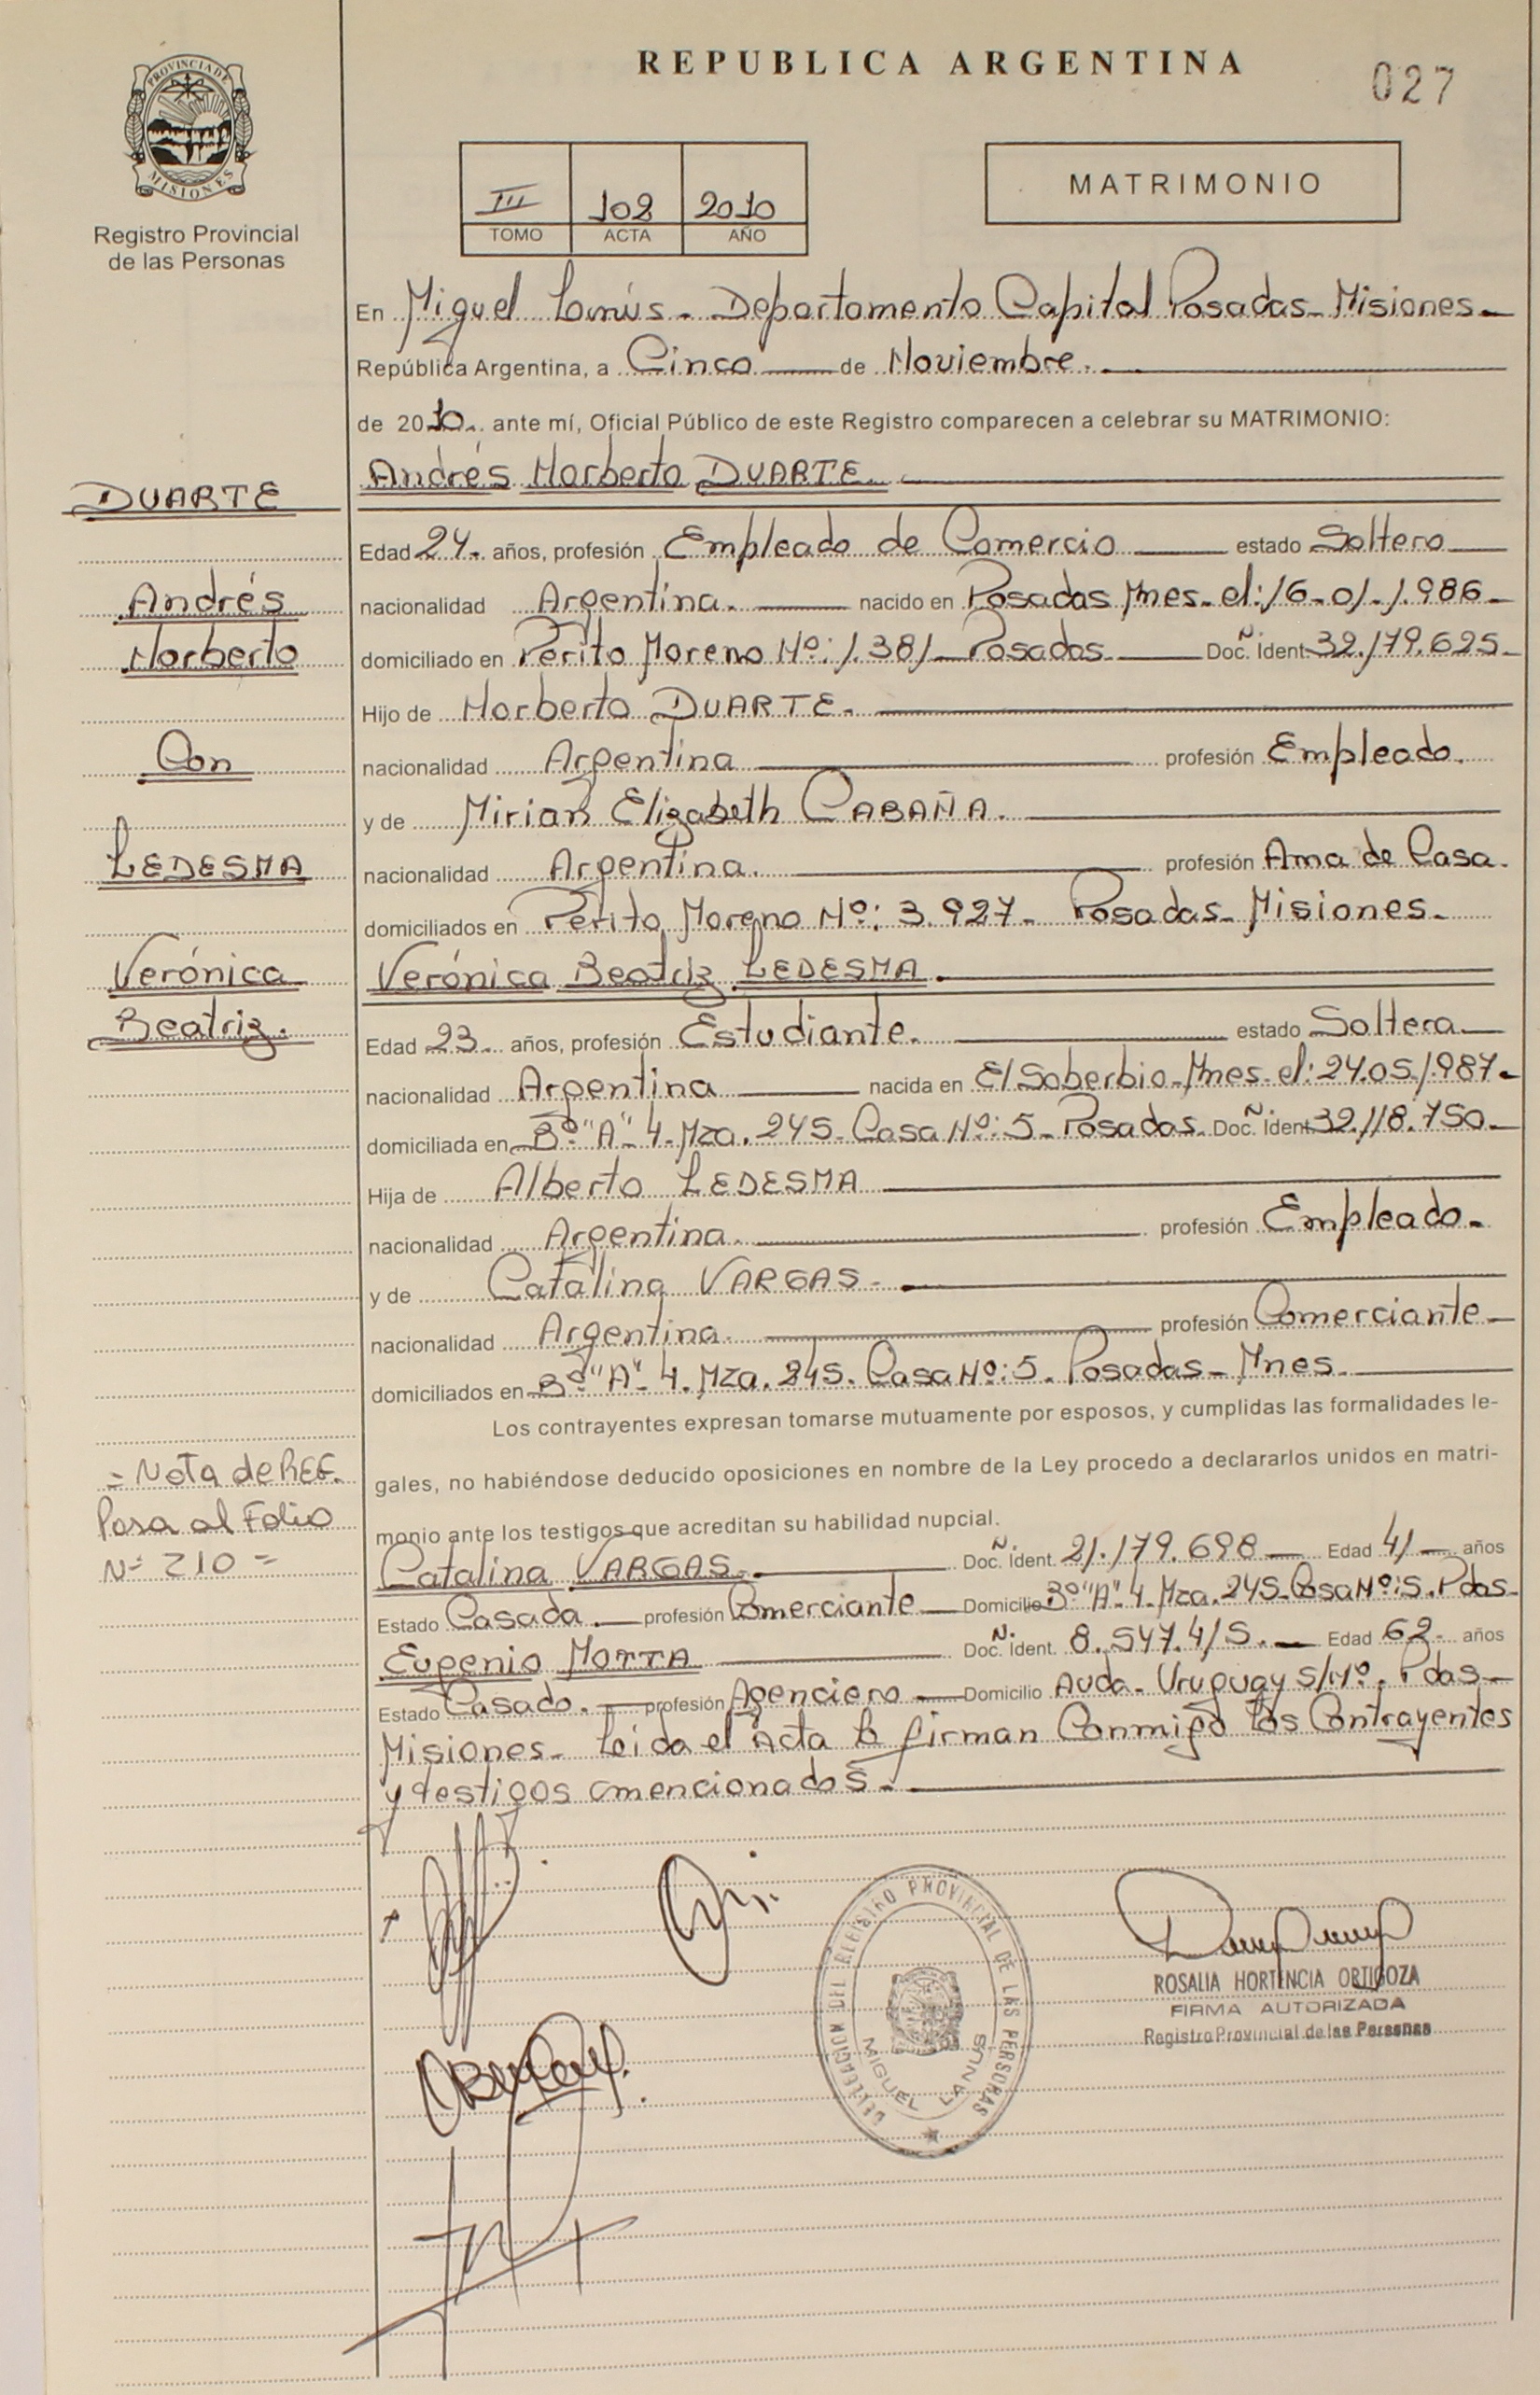 REPUBLICA ARGENTINA
027
PROVINCIA DE
MISIONES
Registro Provincial
de las Personas
III 102 2010
TOMO ACTA AÑO
MATRIMONIO
En Miguel Lanús - Departamento Capital Posadas - Misiones -
República Argentina, a Cinco de Noviembre.
de 2010. ante mí, Oficial Público de este Registro comparecen a celebrar su MATRIMONIO:
Andrés Norberto DUARTE.
DUARTE
Edad 24. años, profesión Empleado de Comercio estado Soltero
Andrés
nacionalidad Argentina. nacido en Posadas Mnes. el: 16-01-1.986-
Norberto
domiciliado en Perito Moreno Nº: 1.381 - Posadas Doc. Ident. Ñ 32.179.625-
Hijo de Norberto DUARTE.
Con
nacionalidad Argentina profesión Empleado.
y de Mirian Elizabeth CABAÑA.
LEDESMA
nacionalidad Argentina. profesión Ama de Casa.
domiciliados en Perito Moreno Nº: 3.927- Posadas - Misiones -
Verónica
Verónica Beatriz LEDESMA.
Beatriz.
Edad 23. años, profesión Estudiante. estado Soltera
nacionalidad Argentina nacida en El Soberbio - Mnes. el: 24.05.1.987-
domiciliada en Bº "A" 4. Mza. 245. Casa Nº: 5 - Posadas. Doc. Ident. Ñ 32.118.750-
Hija de Alberto LEDESMA
nacionalidad Argentina. profesión Empleado.
y de Catalina VARGAS.
nacionalidad Argentina. profesión Comerciante
domiciliados en Bº "A" 4. Mza. 245. Casa Nº: 5. Posadas - Mnes.
Los contrayentes expresan tomarse mutuamente por esposos, y cumplidas las formalidades le-
gales, no habiéndose deducido oposiciones en nombre de la Ley procedo a declararlos unidos en matri-
monio ante los testigos que acreditan su habilidad nupcial.
= Nota de REF.
Pasa al Folio
Nº 210 =
Catalina VARGAS. Doc. Ident. Ñ 21.179.698 Edad 41 años
Estado Casada. profesión Comerciante Domicilio Bº "A" 4. Mza. 245. Casa Nº: 5. Pdas-
Eugenio MOTTA Doc. Ident. N. 8.547.415. Edad 62 años
Estado Casado. profesión Agenciero Domicilio Avda. Uruguay S/Nº. Pdas-
Misiones. Leida el Acta la firman Conmigo los Contrayentes
y testigos mencionados.
DELEGACION DEL REGISTRO PROVINCIAL DE LAS PERSONAS
MIGUEL LANUS
ROSALIA HORTENCIA ORTIGOZA
FIRMA AUTORIZADA
Registro Provincial de las Personas